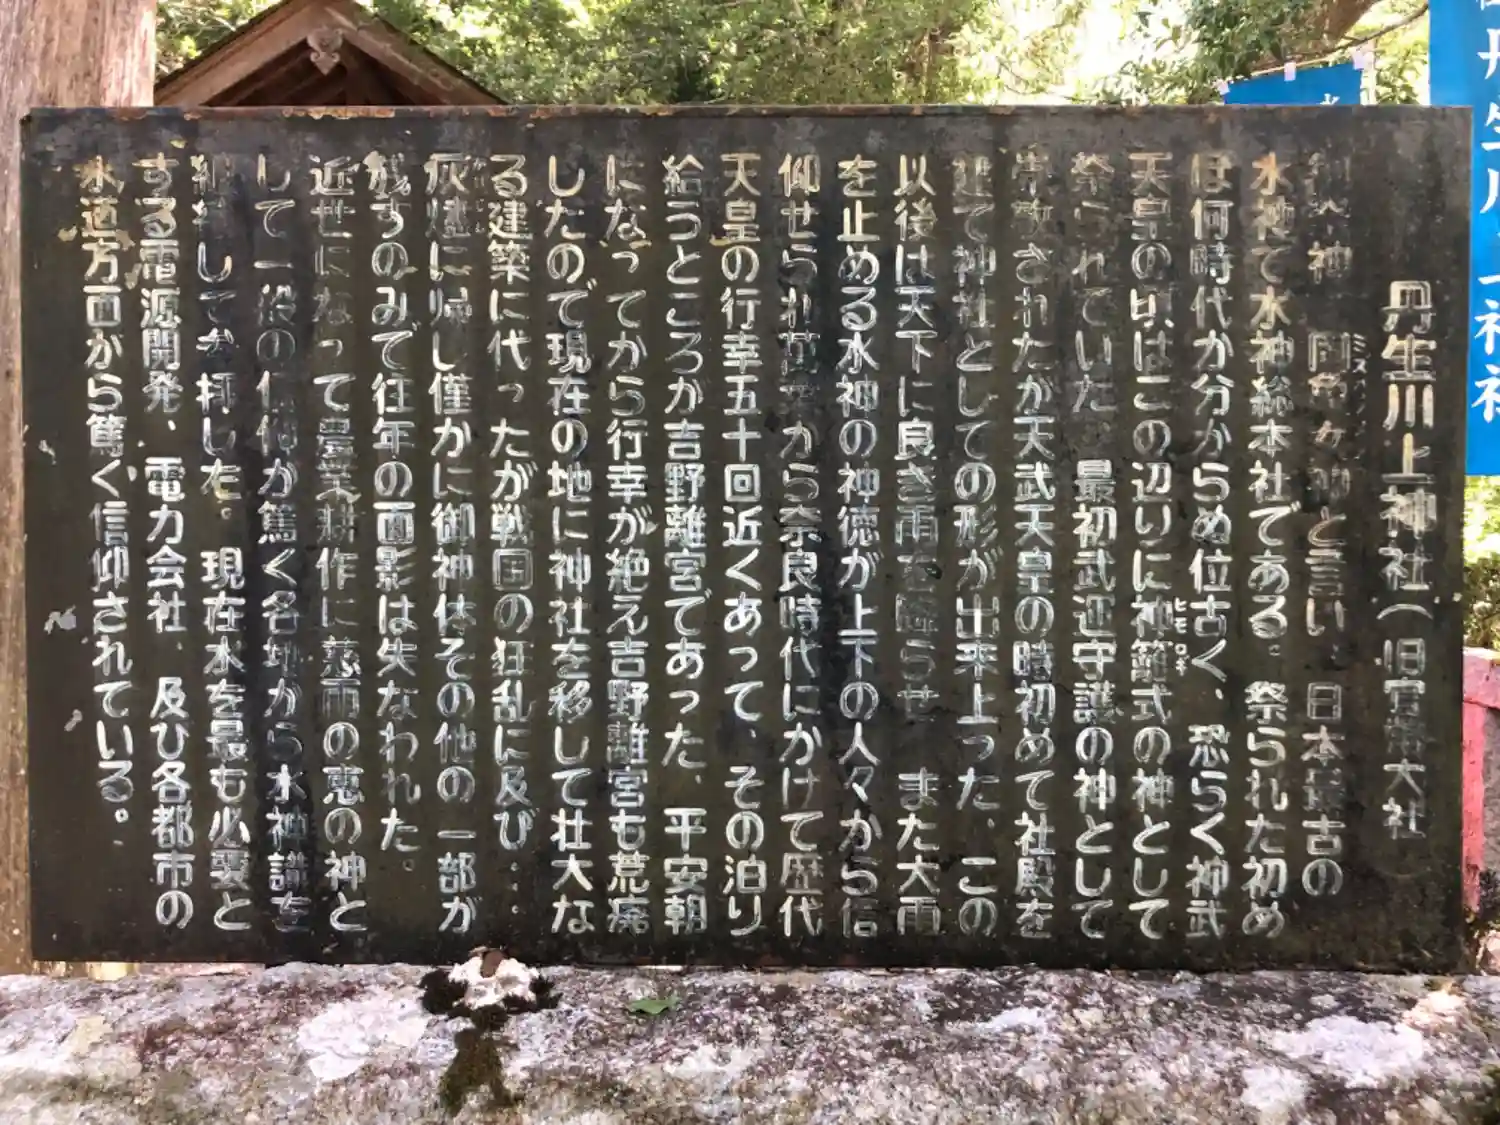 丹生川上神社(旧官幣大社)
神 罔象女神と言い、日本最古の
ミズハノメノ
水神で水神総本社である。祭られた初め
は何時代か分からぬ位古く、恐らく神武
天皇の頃はこの辺りに神籬式の神として
ヒモロギ
祭られていた 最初武運守護の神として
されたが天武天皇の時初めて社殿を
建て神社としての形が出来上った、この
以後は天下に良き雨を降らせ また大雨
を止める水神の神徳が上下の人々から信
仰せられ から奈良時代にかけて歴代
天皇の行幸五十回近くあって、その泊り
給うところが吉野離宮であった、平安朝
になってから行幸が絶え吉野離宮も荒廃
したので現在の地に神社を移して壮大な
る建築に代ったが戦国の狂乱に及び‥
灰燼に帰し僅かに御神体その他の一部が
残すのみで往年の面影は失なわれた。
近世になって農業耕作に慈雨の恵の神と
して一般の信仰が篤く各地から水神講を
組織して参拝した。現在水を最も必要と
する電源開発、電力会社、及び各都市の
水道方面から篤く信仰されている。
丹生川上神社